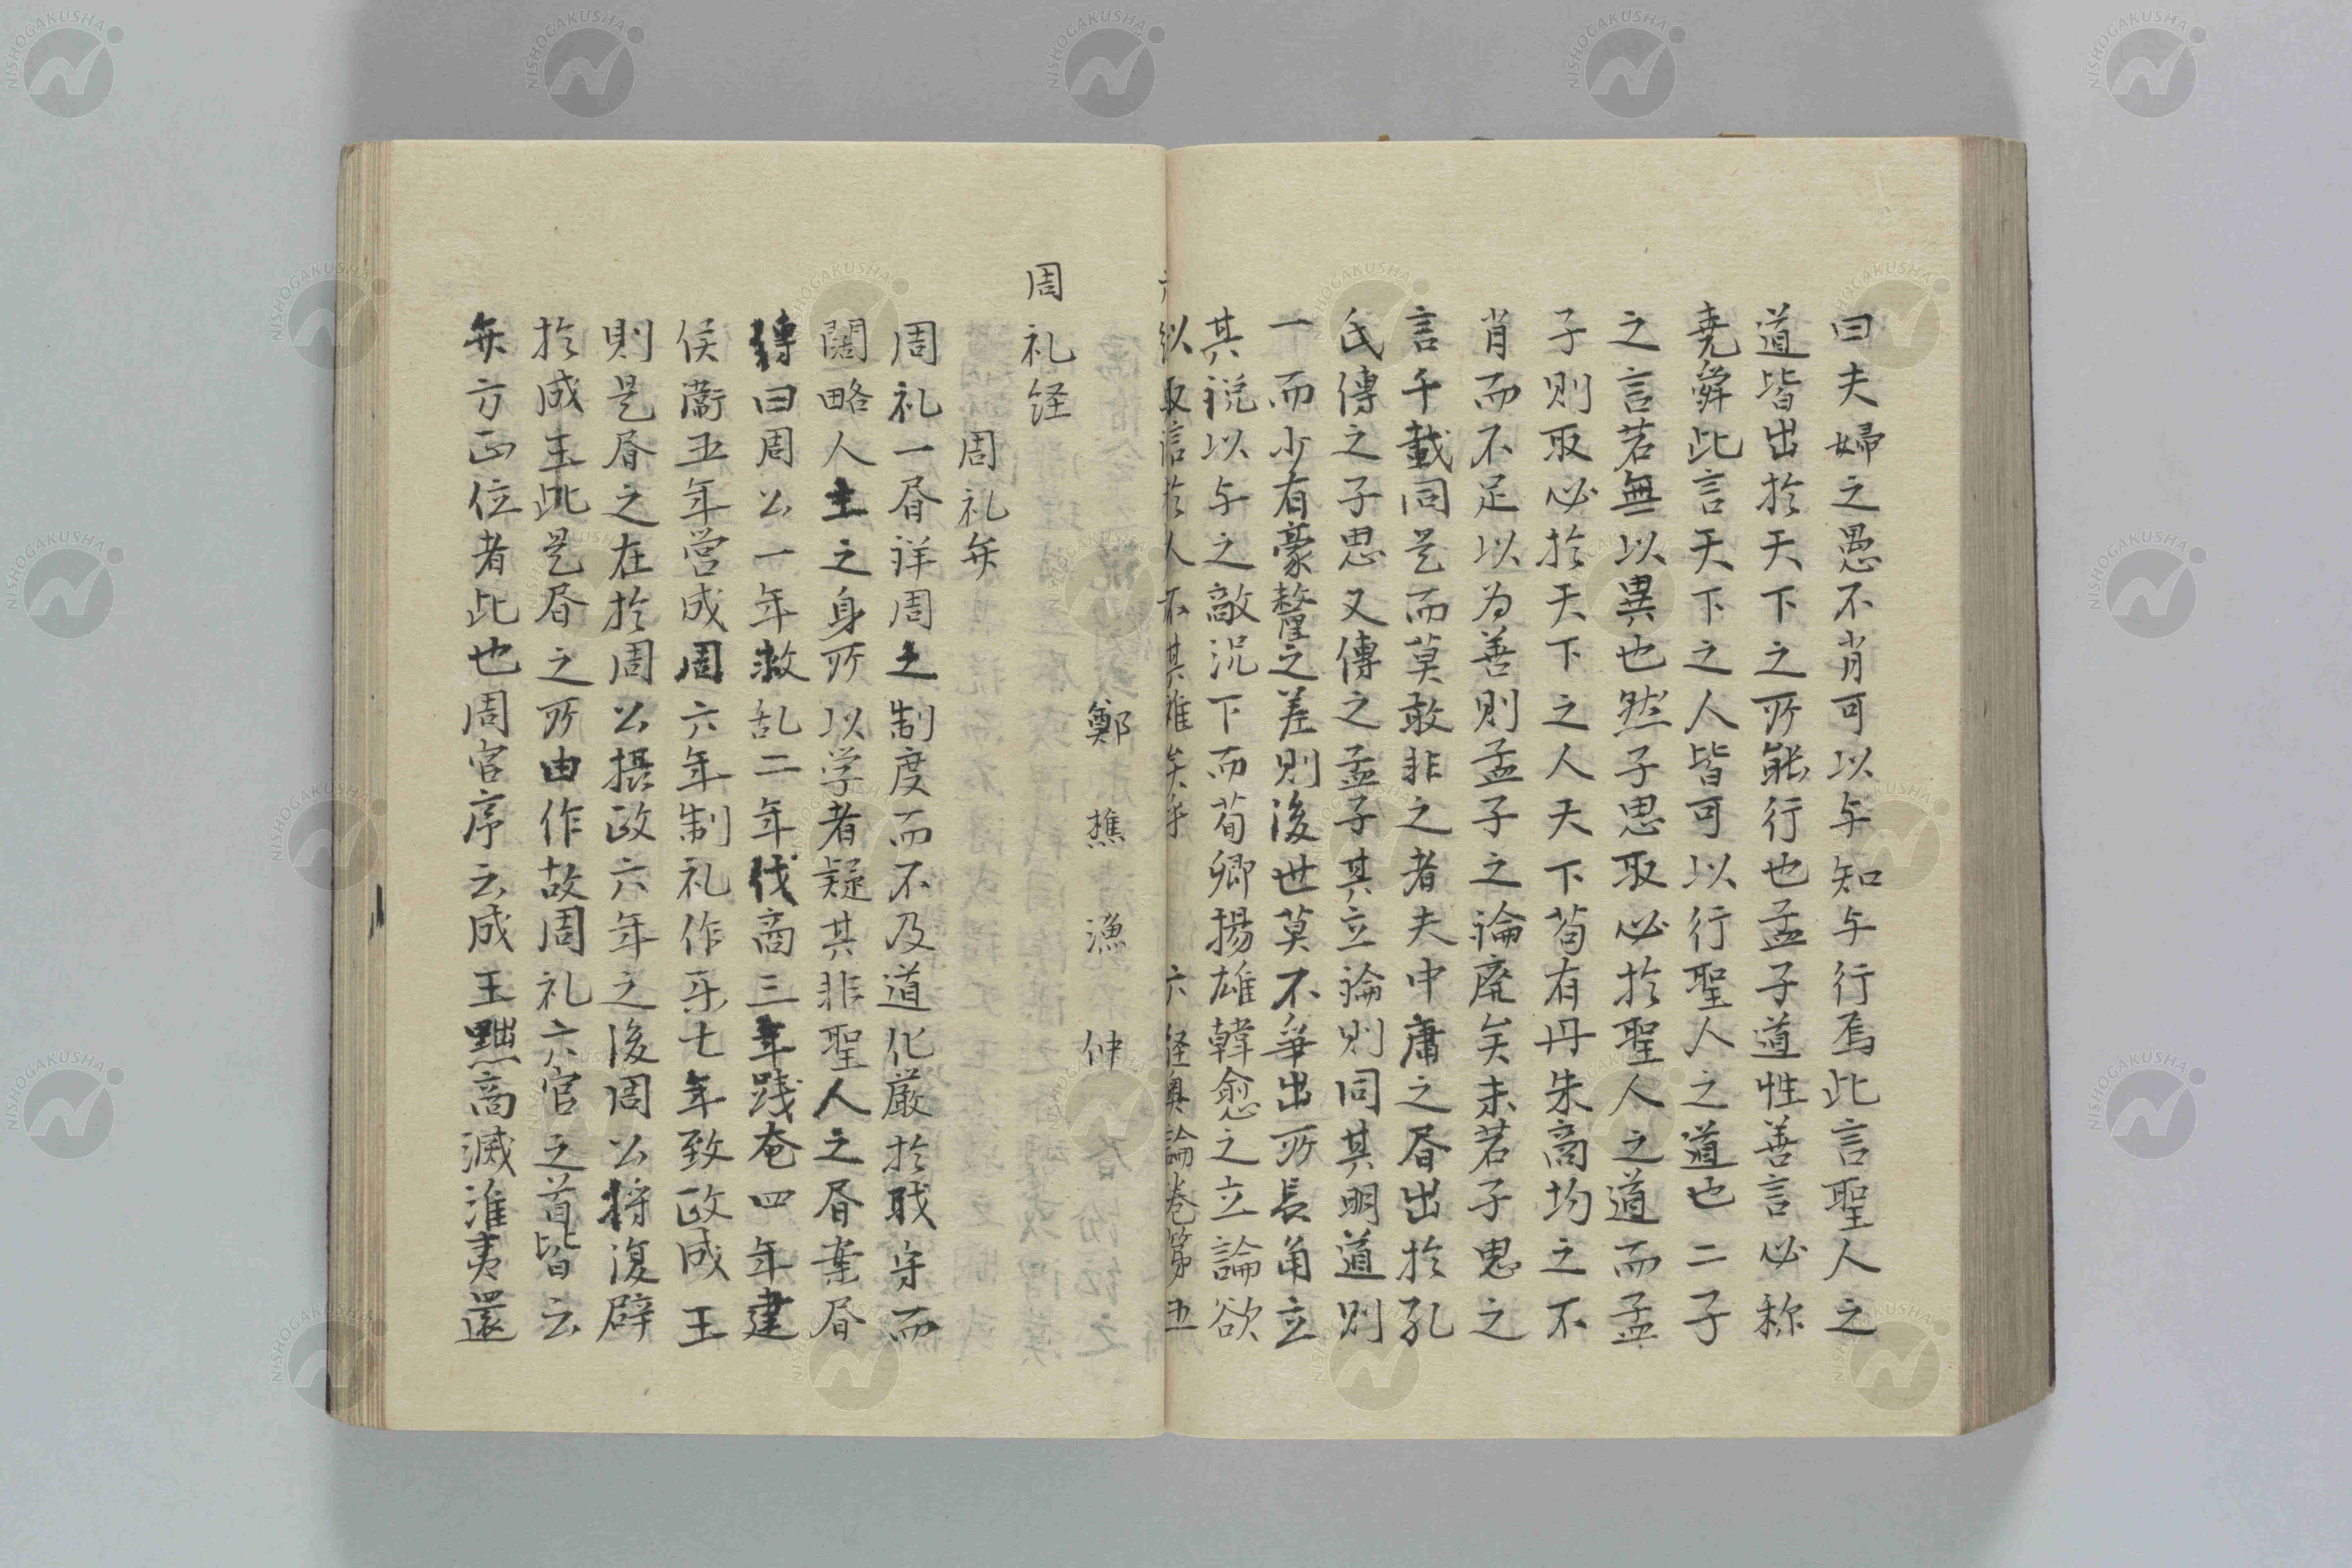 曰夫婦之愚不肖可以与知与行焉此言聖人之
道皆出於天下之所能行也孟子道性善言必称
尭舜此言天下之人皆可以行聖人之道也二子
之言若無以異也然子思取必於聖人之道而孟
子則取必於天下之人天下苟有丹朱商均之不
肖而不足以为善則孟子之論廃矣未若子思之
言千載同是而莫敢非之者夫中庸之昏出於孔
氏傳之子思又傳之孟子其立論則同其明道則
一而少有豪釐之差則後世莫不華出所長角立
其説以与之敵况下而荀卿揚雄韓愈之立論欲
以取信於人不其难矣乎 六経奥論巻第五
鄭樵漁仲
周礼経
周礼弁
周礼一昏详周之制度而不及道化厳於职守而
闊略人主之身所以学者疑其非聖人之昏案昏
傳曰周公一年救乱二年伐商三年践奄四年建
侯衞五年営成周六年制礼作乐七年致政成王
則是昏之在於周公摂政六年之後周公将復辟
於成王此是昏之所由作故周礼六官之首皆云
弁方正位者此也周官序云成王黜商滅淮夷還
NISHOGAKUSHA
NISHOGAKUSHA
NISHOGAKUSHA
NISHOGAKUSHA
NISHOGAKUSHA